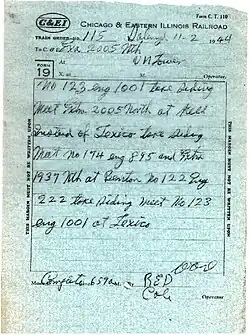 C&EI
Form C. T. 110
CHICAGO & EASTERN ILLINOIS RAILROAD
TRAIN ORDER NO. 115 11-2 1944
To C. & E. Exa 2005 Nth
At
FORM 19
X. at M. Operator.
No 123 eng 1001 take siding
meet Extra 2005 North at
instead of Texico take siding
meet no 174 eng 895 and Extra
1937 Nth at Benton no 122 Eng
222 take siding meet No 123
eng 1001 at Texico
THIS MARGIN MUST NOT BE WRITTEN UPON
THIS MARGIN MUST NOT BE WRITTEN UPON
Made Complete 657 a M.
Operator